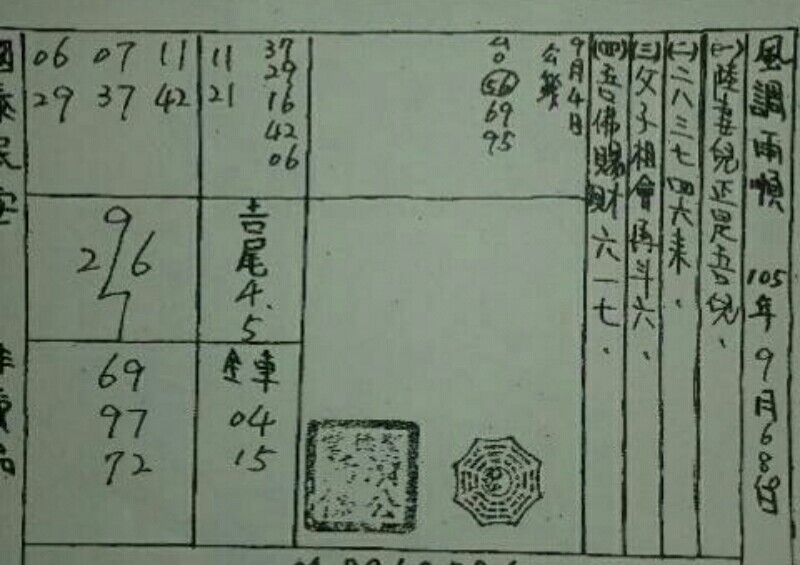 風調雨順 105年9月6.8台
(一)陸妻兒正是吾兒.
(二)二八三七四六来.
(三)父子相會再斗六.
(四)吾佛賜財六一七.
9月4日
公獎
台
56
69
95
37
29
16
42
06
11
21
06 07 11
29 37 42
吉尾4.5
9
2 6
7
全車
04
15
69
97
72
國泰民安